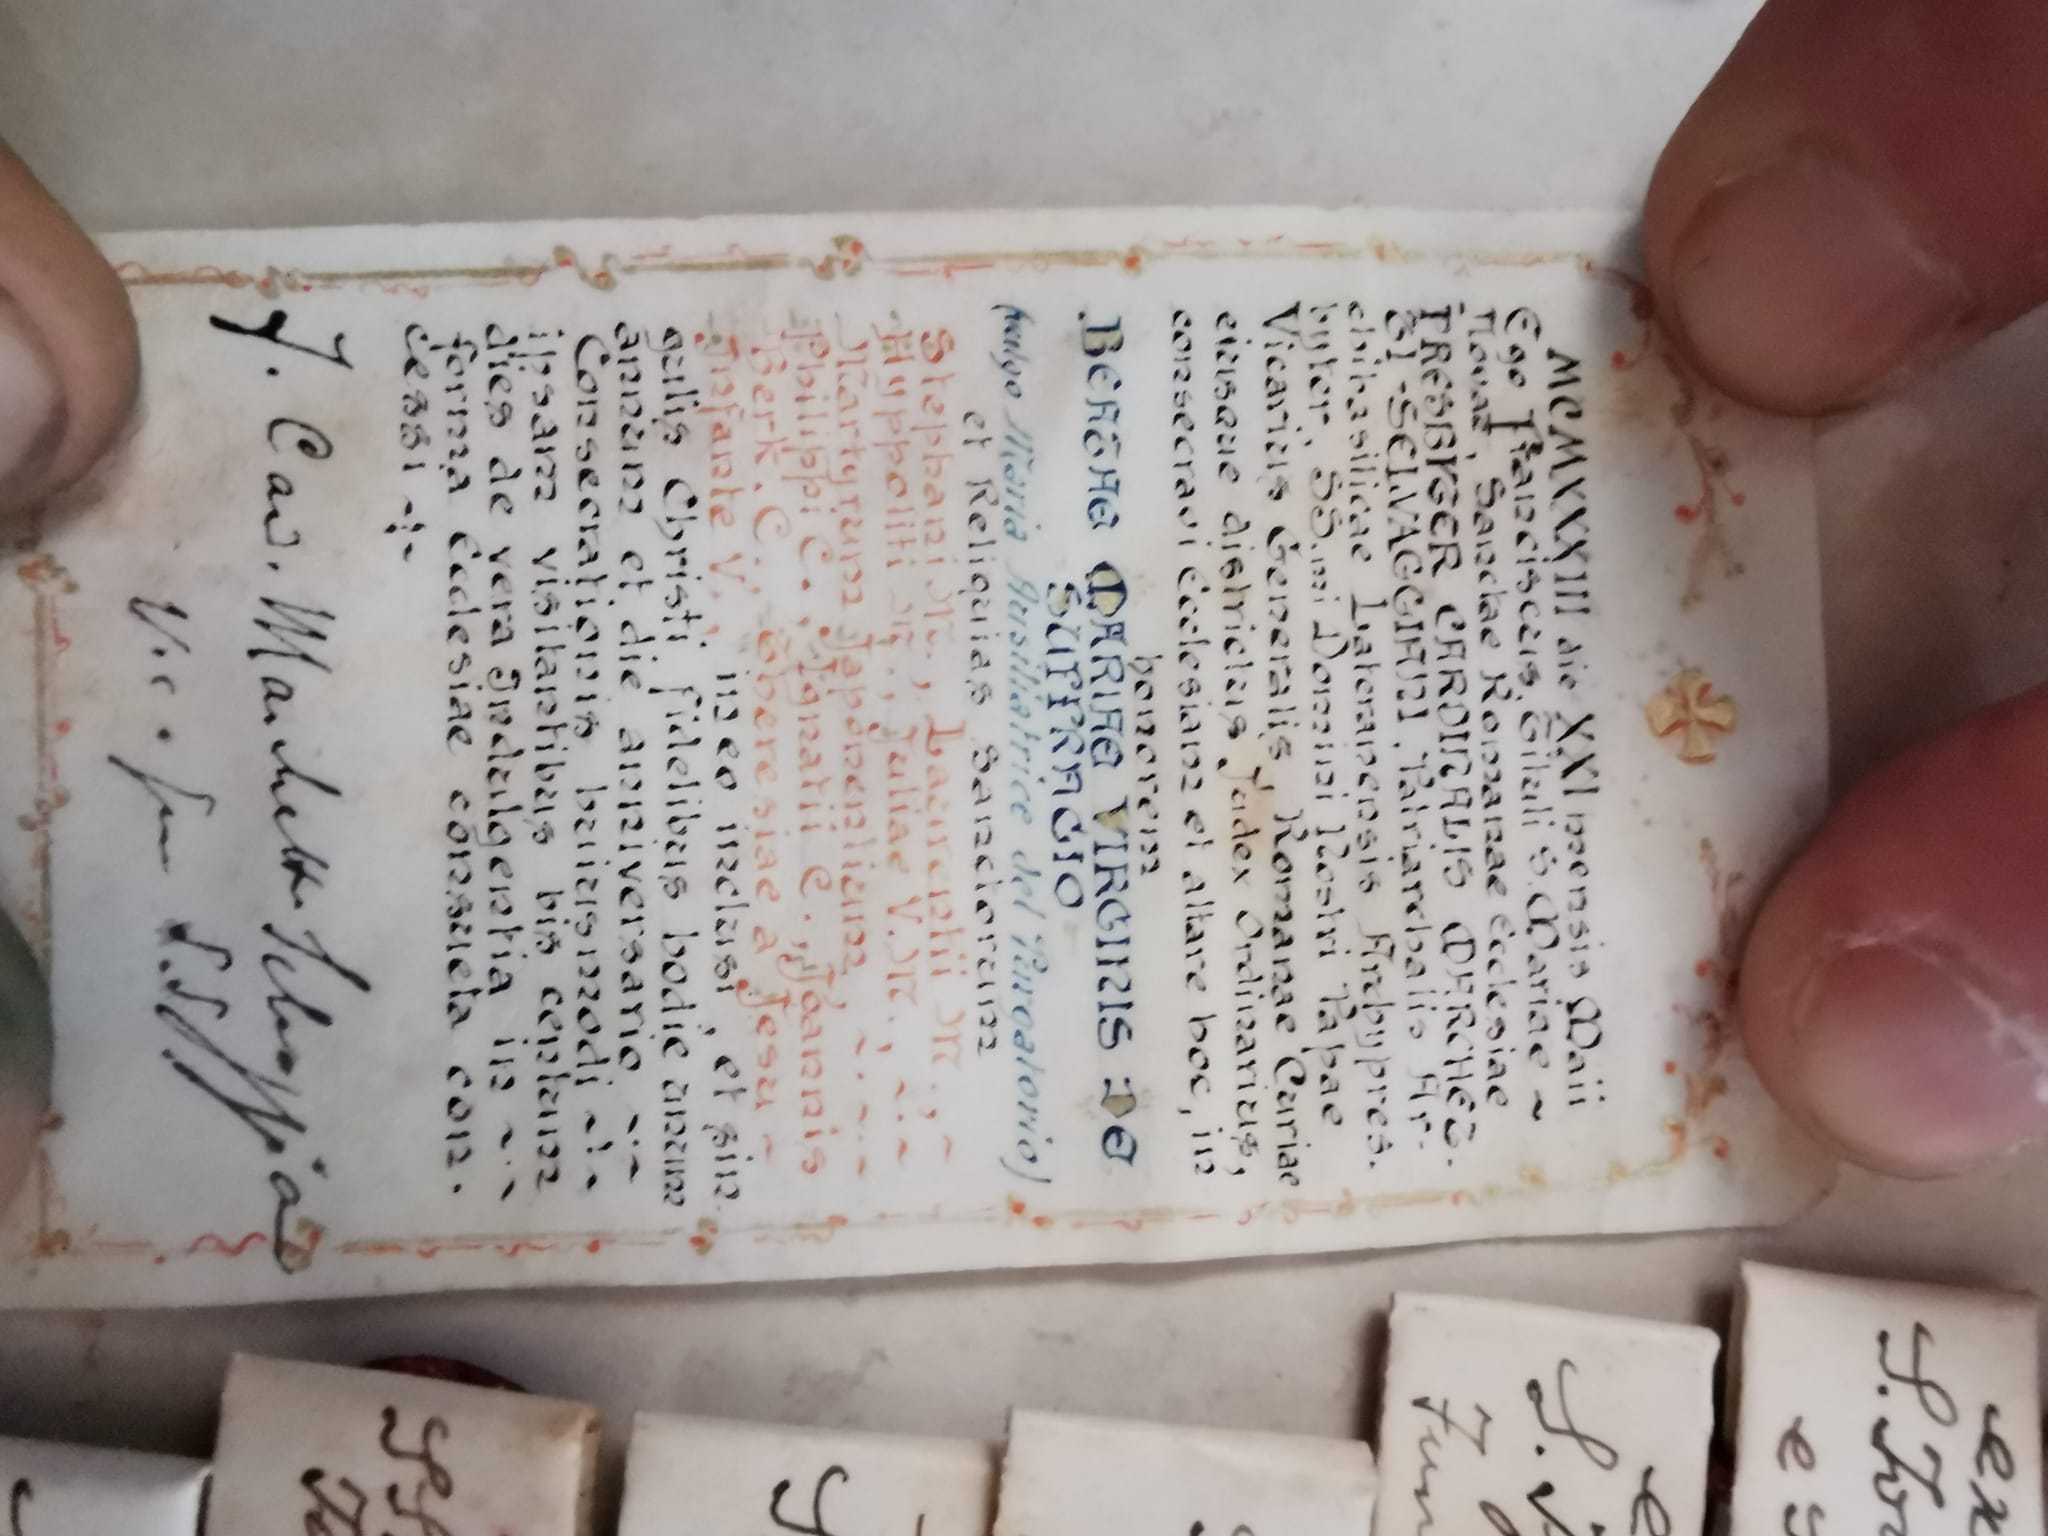 MCMXXXIII die XXI mensis Maii
Ego Franciscus, Tituli S. Mariae ~
Novae, Sanctae Romanae Ecclesiae
PRESBYTER CARDINALIS MARCHET-
TI-SELVAGGIANI, Patriarchalis Ar-
chibasilicae Lateranensis Archypres-
byter, SS.mi Domini Nostri Papae
Vicarius Generalis, Romanae Curiae
eiusque districtus Judex Ordinarius,
consecravi Ecclesiam et altare hoc, in
honorem
BEATAE MARIAE VIRGINIS DE
SUFFRAGIO
(vulgo Maria Ausiliatrice del Purgatorio)
et Reliquias Sanctorum
Stephani M., Laurentii M., ~
Hyppoliti M., Juliae V.M., ~.~
Martyrum Japonensium ~.~.~
Philippi C., Ignatii C., Joannis
Berk. C., Theresiae a Jesu ~
Infante V., in eo inclusi, et sin-
gulis Christi fidelibus hodie unum
annum et die anniversario ~.~
Consecrationis huiusmodi ~.~.~
ipsam visitantibus bis centum
dies de vera Indulgentia in ~.~
forma Ecclesiae consueta con-
cessi ~.~
F. Card. Marchetti Selvaggiani
S. T.
S.